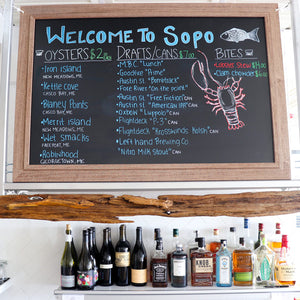 WELCOME TO SOPO
OYSTERS $2.00
DRAFTS/CANS $7.00
BITES
- Iron island
NEW MEADOWS, ME
- Kettle cove
CASCO BAY, ME
- Blaney Points
CASCO BAY, ME
- Merrit island
NEW MEADOWS, ME
- Wet smacks
FREEPORT, ME
- Robinhood
GEORGETOWN, ME
- M.B.C "Lunch"
- Goodfire "Prime"
- Austin St "Bomb
- Fore River "on the point"
- Austin St "Free Fiction" CAN
- Austin St "American IPA" CAN
- Oxbow "Luppolo" CAN
- Flightdeck "P-3" CAN
- Flightdeck "Crosswinds Kolsh" CAN
- Left hand Brewing Co
"Nitro Milk Stout" CAN
- Lobster Stew
- Clam chowder
KNOB